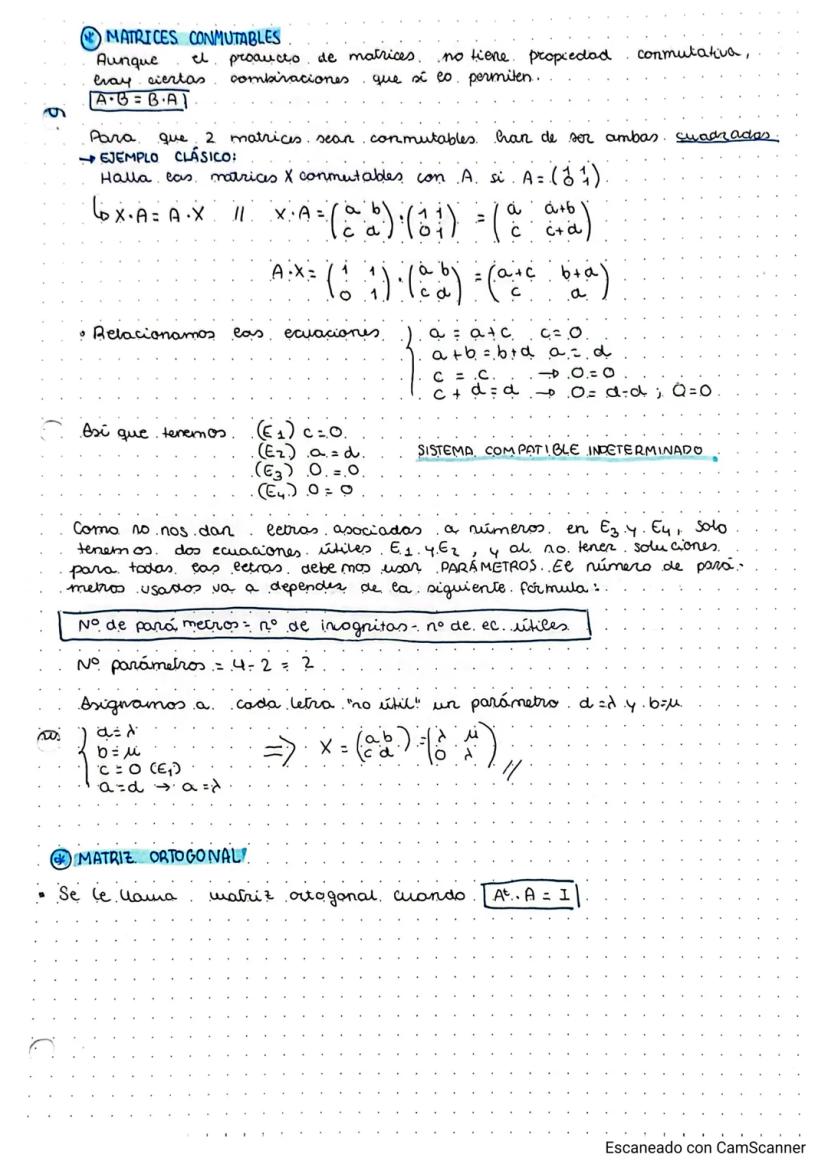 * MATRICES CONMUTABLES
Aunque el producto de matrices no tiene propiedad conmutativa,
hay ciertas combinaciones que sí lo permiten.
A·B = B·A
Para que 2 matrices sean conmutables han de ser ambas cuadradas.
→ EJEMPLO CLÁSICO:
Halla las matrices X conmutables con A si A = (1 1 / 0 1).
↳ X·A = A·X // X·A = (a b / c d)·(1 1 / 0 1) = (a a+b / c c+d)
A·X = (1 1 / 0 1)·(a b / c d) = (a+c b+d / c d)
• Relacionamos las ecuaciones { a = a+c c=0
a+b = b+d a = d
c = c → 0=0
c + d = d → 0 = d-d ; 0=0
Así que tenemos (E1) c=0
(E2) a = d
(E3) 0 = 0
(E4) 0 = 0
SISTEMA COMPATIBLE INDETERMINADO
Como no nos dan letras asociadas a números en E3 y E4, solo
tenemos dos ecuaciones útiles E1 y E2, y al no tener soluciones
para todas las letras debemos usar PARÁMETROS. El número de pará-
metros usados va a depender de la siguiente fórmula:
Nº de parámetros = nº de incognitas - nº de ec. útiles
Nº parámetros = 4-2 = 2
Asignamos a cada letra "no útil" un parámetro d=λ y b=μ
{ d=λ
b=μ
c=0 (E1)
a=d → a=λ
⇒ X = (a b / c d) = (λ μ / 0 λ) //
* MATRIZ ORTOGONAL
• Se le llama matriz ortogonal cuando Aᵗ·A = I
Escaneado con CamScanner